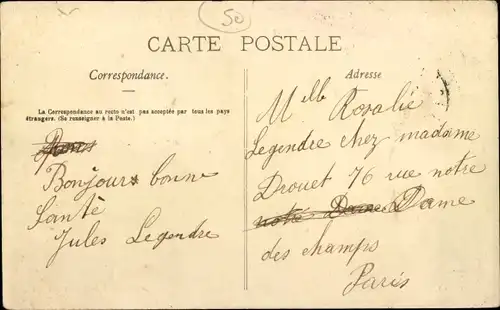 50
CARTE POSTALE
Correspondance.
La Correspondance au recto n'est pas acceptée par tous les pays
étrangers. (Se renseigner à la Poste.)
Bonjours bonne
Santé
Jules Legendre
Adresse
Melle Rosalie
Legendre chez madame
Drouet 76 rue notre
notre Dame Dame
des champs
Paris